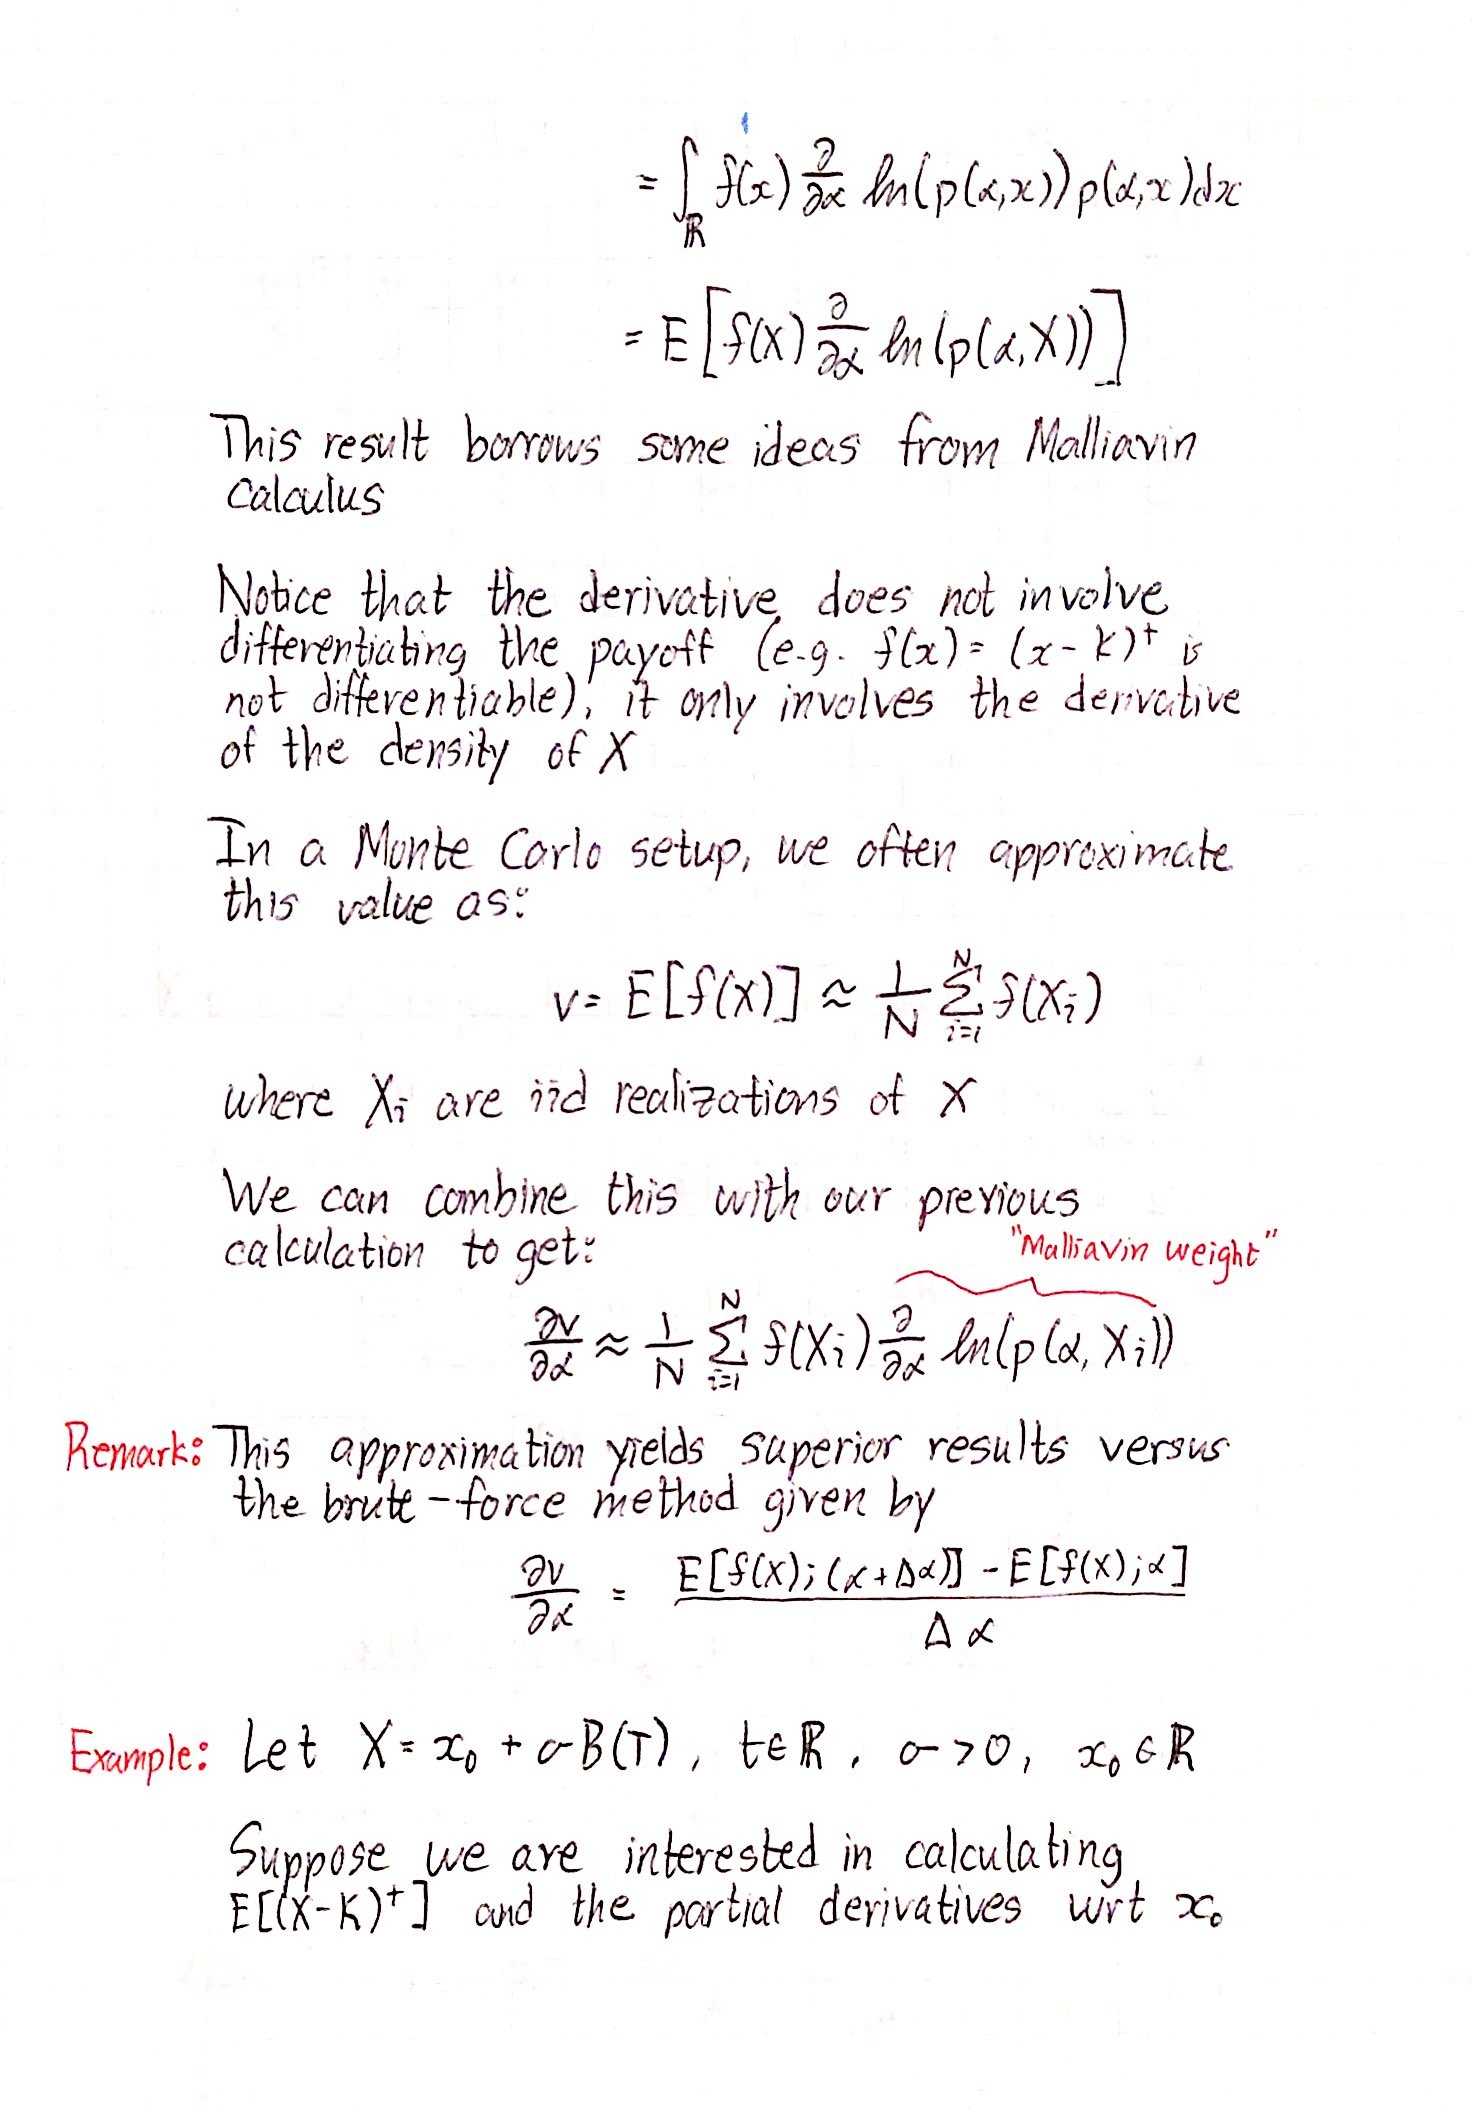 = ∫_ℝ f(x) ∂/∂α ln(p(α,x)) p(α,x)dx
= E[f(X) ∂/∂α ln(p(α,X))]
This result borrows some ideas from Malliavin
calculus
Notice that the derivative does not involve
differentiating the payoff (e.g. f(x) = (x-K)⁺ is
not differentiable), it only involves the derivative
of the density of X
In a Monte Carlo setup, we often approximate
this value as:
v = E[f(X)] ≈ 1/N Σ_{i=1}^N f(X_i)
where X_i are iid realizations of X
We can combine this with our previous
calculation to get:
"Malliavin weight"
∂v/∂α ≈ 1/N Σ_{i=1}^N f(X_i) ∂/∂α ln(p(α, X_i))
Remark: This approximation yields superior results versus
the brute-force method given by
∂v/∂α = (E[f(X);(α+Δα)] - E[f(X);α]) / Δα
Example: Let X = x₀ + σB(T), t∈ℝ, σ>0, x₀∈ℝ
Suppose we are interested in calculating
E[(X-K)⁺] and the partial derivatives wrt x₀